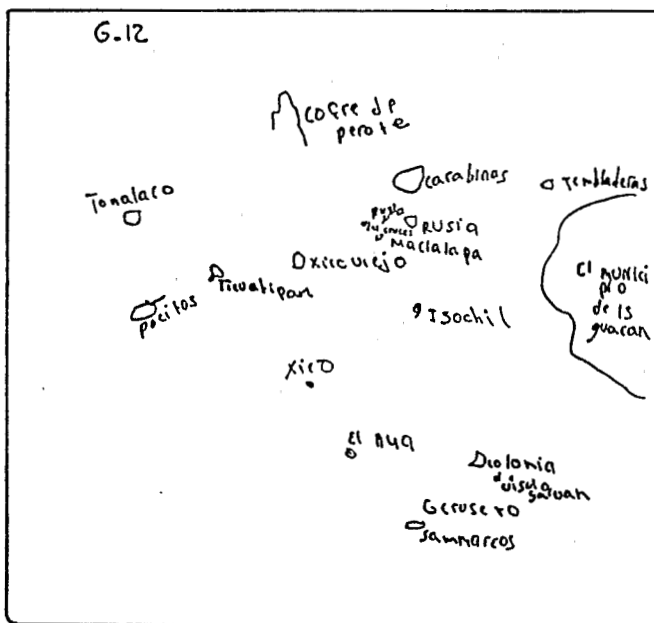 G.12
cofre de
perote
carabinas
Tembladeras
Tonalaco
RUSIA
Maclalapa
xicoviejo
Ticuatipan
pocitos
Isochil
El Munici
pio
de Is
guacan
xico
El Aua
colonia
Gerusero
sanmarcos